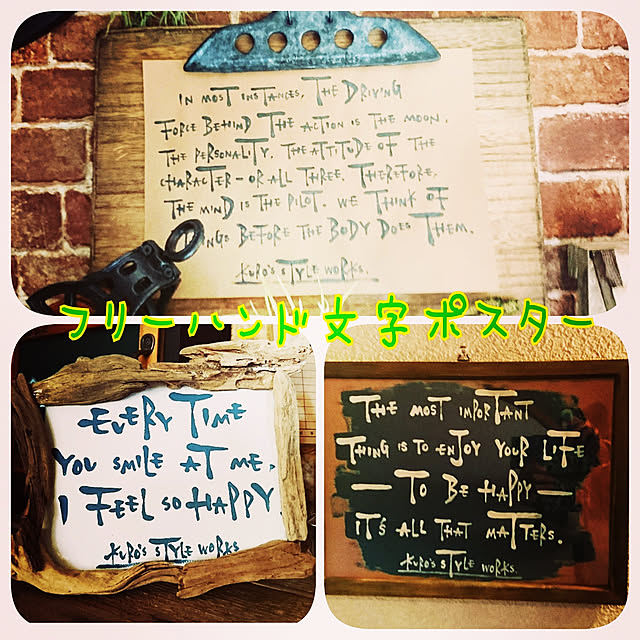 IN MOST INSTANCES, THE DRIVING
FORCE BEHIND THE ACTION IS THE MOON.
THE PERSONALITY. THE ATTITUDE OF THE
CHARACTER - OR ALL THREE. THEREFORE,
THE MIND IS THE PILOT. WE THINK OF
INGS BEFORE THE BODY DOES THEM.
KURO'S STYLE WORKS.
フリーハンド文字ポスター
EVERY TIME
YOU SMILE AT ME,
I FEEL SO HAPPY.
KURO'S STYLE WORKS
THE MOST IMPORTANT
THING IS TO ENJOY YOUR LIFE
— TO BE HAPPY —
IT'S ALL THAT MATTERS.
KURO'S STYLE WORKS.